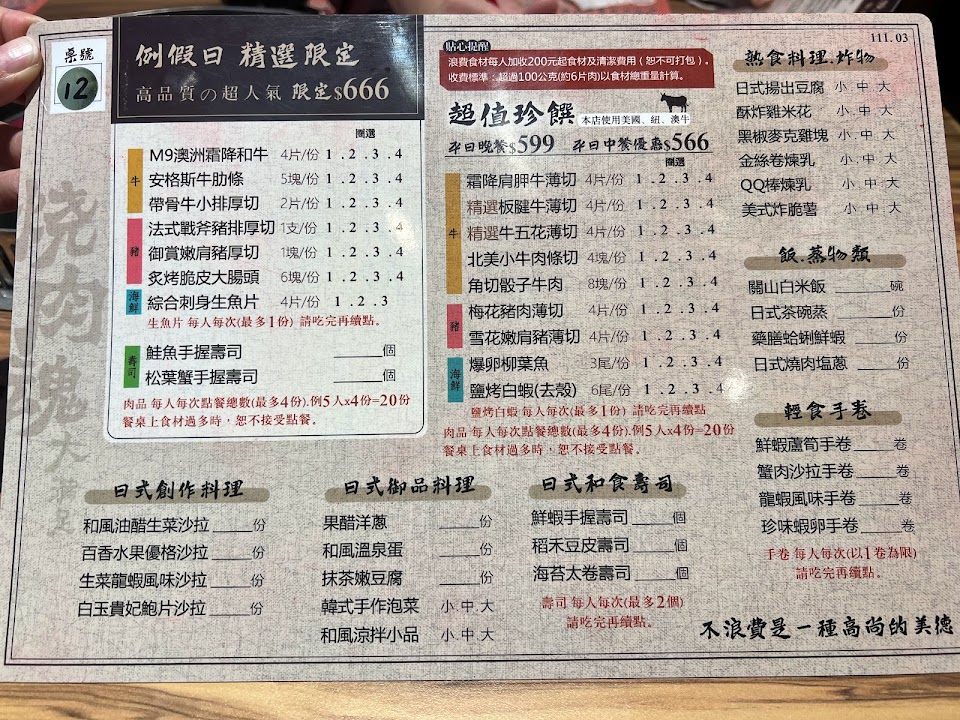 桌號
12
例假日 精選限定
高品質の超人氣 限定$666
圈選
牛
M9澳洲霜降和牛 4片/份 1 . 2 . 3 . 4
安格斯牛肋條 5塊/份 1 . 2 . 3 . 4
帶骨牛小排厚切 2片/份 1 . 2 . 3 . 4
豬
法式戰斧豬排厚切 1支/份 1 . 2 . 3 . 4
御賞嫩肩豬厚切 1塊/份 1 . 2 . 3 . 4
炙烤脆皮大腸頭 6塊/份 1 . 2 . 3 . 4
海鮮
綜合刺身生魚片 4片/份 1 . 2 . 3
生魚片 每人每次(最多1份) 請吃完再續點。
壽司
鮭魚手握壽司 _____個
松葉蟹手握壽司 _____個
肉品 每人每次點餐總數(最多4份).例5人x4份=20份
餐桌上食材過多時，恕不接受點餐。
貼心提醒
浪費食材每人加收200元起食材及清潔費用（恕不可打包）。
收費標準：超過100公克(約6片肉)以食材總重量計算。
超值珍饌 本店使用美國、紐、澳牛
平日晚餐$599 平日中餐優惠$566
圈選
牛
霜降肩胛牛薄切 4片/份 1 . 2 . 3 . 4
精選板腱牛薄切 4片/份 1 . 2 . 3 . 4
精選牛五花薄切 4片/份 1 . 2 . 3 . 4
北美小牛肉條切 4塊/份 1 . 2 . 3 . 4
角切骰子牛肉 8塊/份 1 . 2 . 3 . 4
豬
梅花豬肉薄切 4片/份 1 . 2 . 3 . 4
雪花嫩肩豬薄切 4片/份 1 . 2 . 3 . 4
海鮮
爆卵柳葉魚 3尾/份 1 . 2 . 3 . 4
鹽烤白蝦(去殼) 6尾/份 1 . 2 . 3 . 4
鹽烤白蝦 每人每次(最多1份) 請吃完再續點
肉品 每人每次點餐總數(最多4份).例5人x4份=20份
餐桌上食材過多時，恕不接受點餐。
111. 03
熟食料理.炸物
日式揚出豆腐 小 . 中 . 大
酥炸雞米花 小 . 中 . 大
黑椒麥克雞塊 小 . 中 . 大
金絲卷煉乳 小 . 中 . 大
QQ棒煉乳 小 . 中 . 大
美式炸脆薯 小 . 中 . 大
飯.蒸物類
關山白米飯 _____碗
日式茶碗蒸 _____份
藥膳蛤蜊鮮蝦 _____份
日式燒肉塩蔥 _____份
輕食手卷
鮮蝦蘆筍手卷 _____卷
蟹肉沙拉手卷 _____卷
龍蝦風味手卷 _____卷
珍味蝦卵手卷 _____卷
手卷 每人每次(以1卷為限)
請吃完再續點。
日式創作料理
和風油醋生菜沙拉 _____份
百香水果優格沙拉 _____份
生菜龍蝦風味沙拉 _____份
白玉貴妃鮑片沙拉 _____份
日式御品料理
果醋洋蔥 _____份
和風溫泉蛋 _____份
抹茶嫩豆腐 _____份
韓式手作泡菜 小 . 中 . 大
和風涼拌小品 小 . 中 . 大
日式和食壽司
鮮蝦手握壽司 _____個
稻禾豆皮壽司 _____個
海苔太卷壽司 _____個
壽司 每人每次(最多2個)
請吃完再續點。
不浪費是一種高尚的美德
燒肉魂